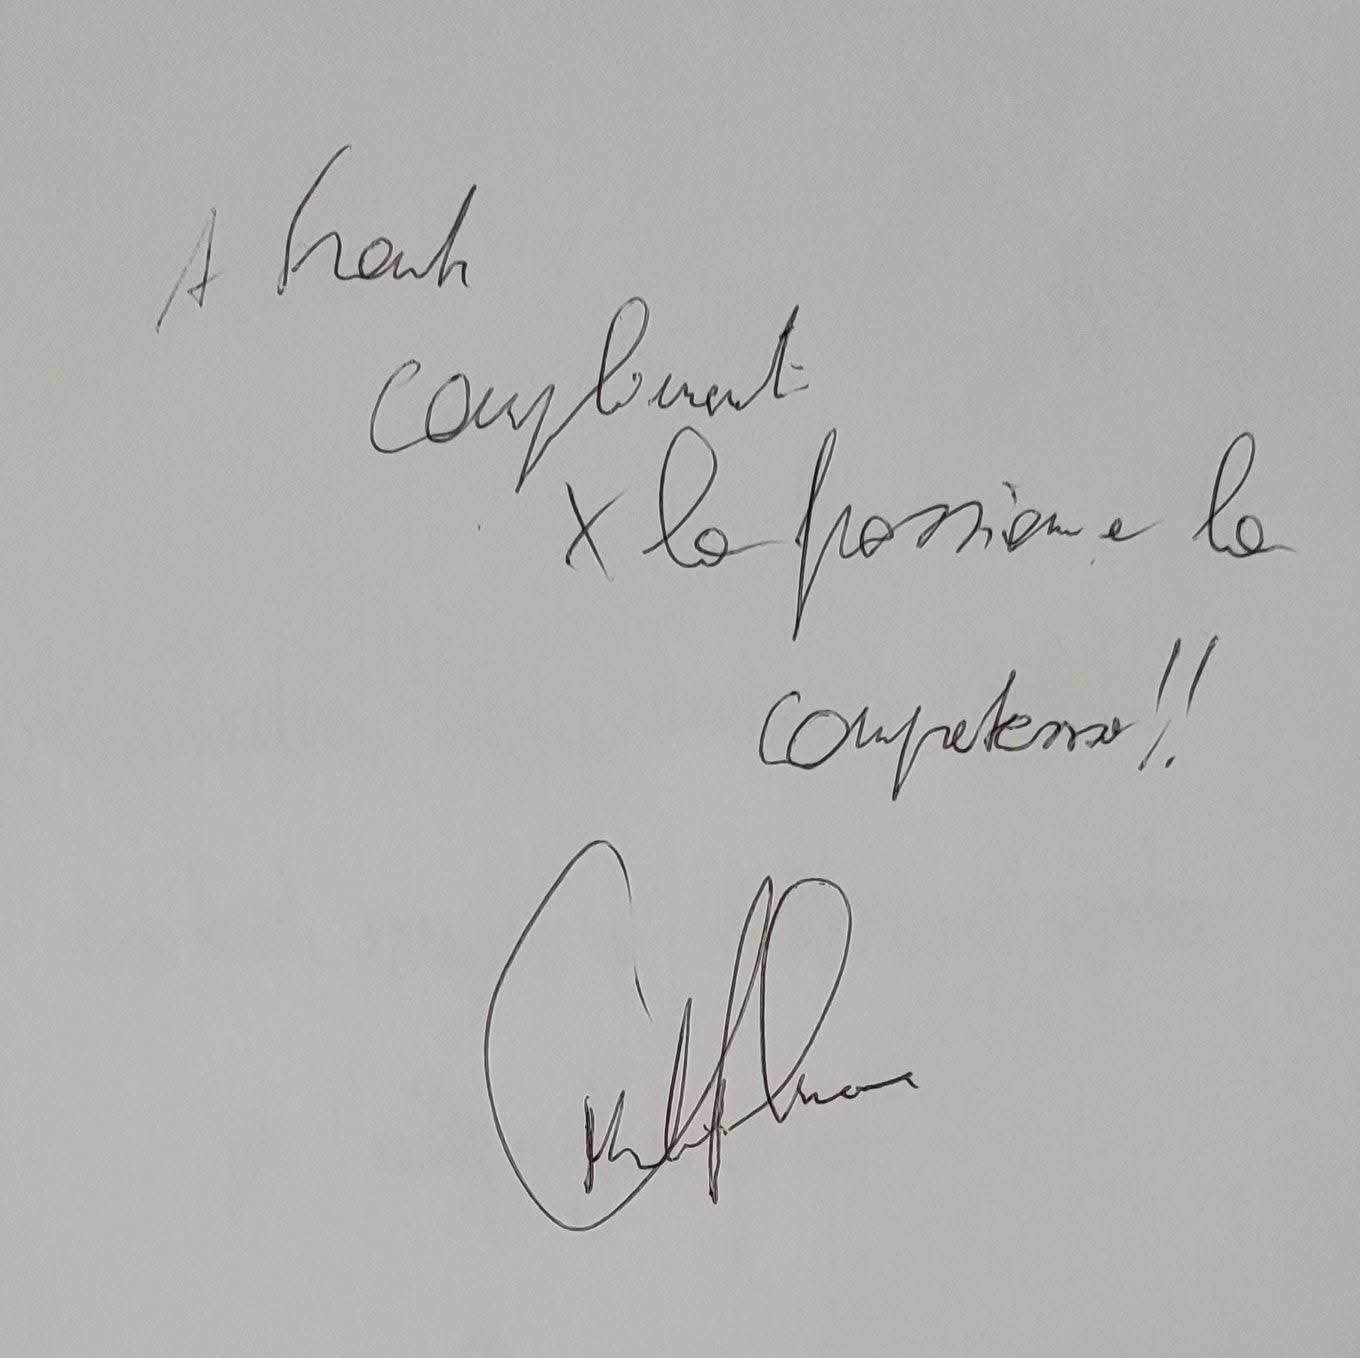 A Frank
complimenti
x la passione e la
competenza!!